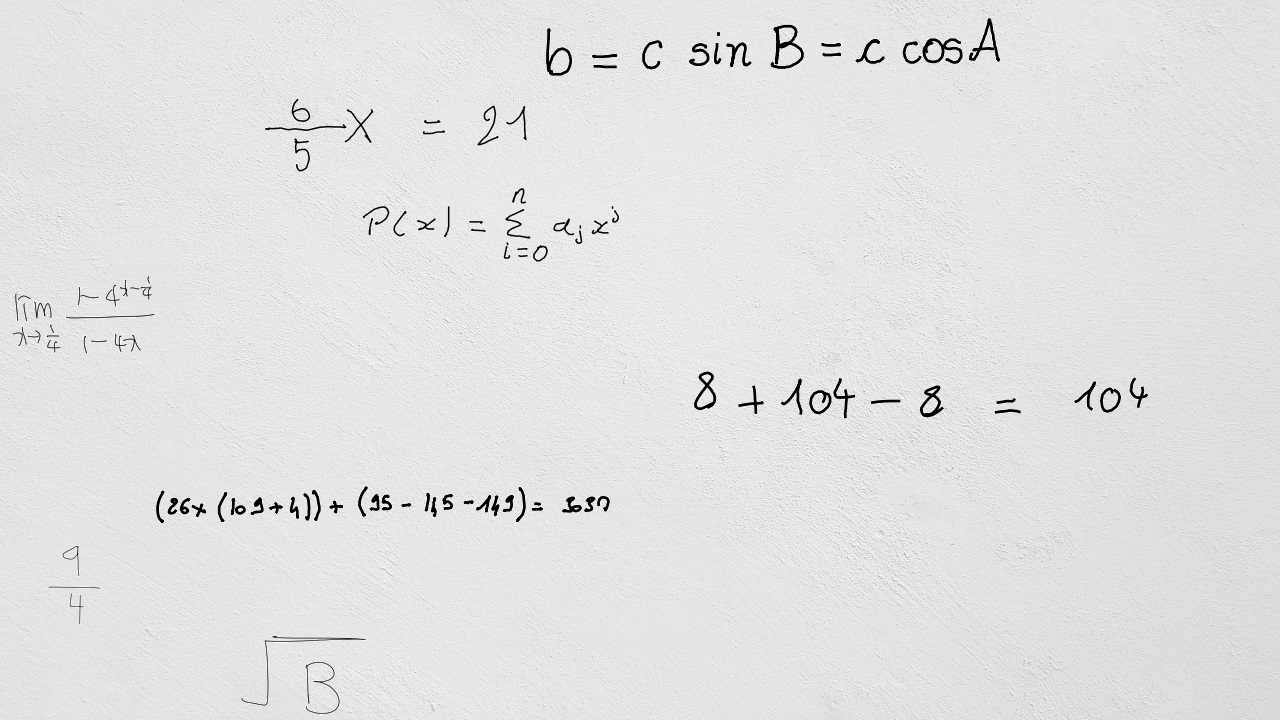 b = c sin B = c cos A
6/5 x = 21
P(x) = ∑_{i=0}^{n} a_j x^j
lim_{x→1/4} (1-4^{x-1/4})/(1-4x)
8 + 104 - 8 = 104
(26x (109+4)) + (95 - 145 - 149) =
9/4
√B